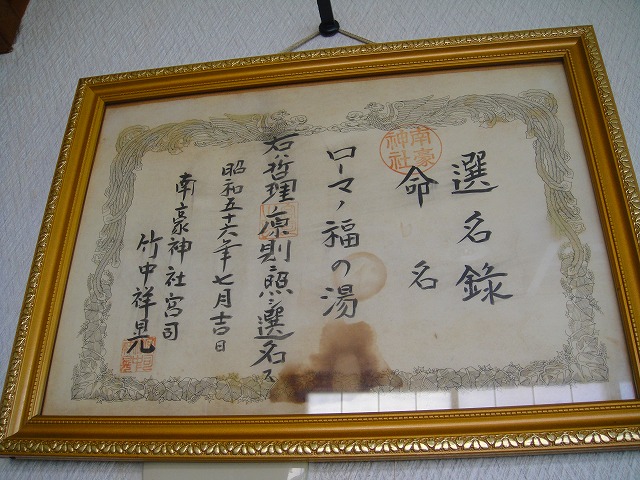 選名錄
南豪神社
命名
ローマノ福の湯
右哲理原則ニ照シ選名ス
昭和五十六年七月吉日
南豪神社宮司
竹中祥晃